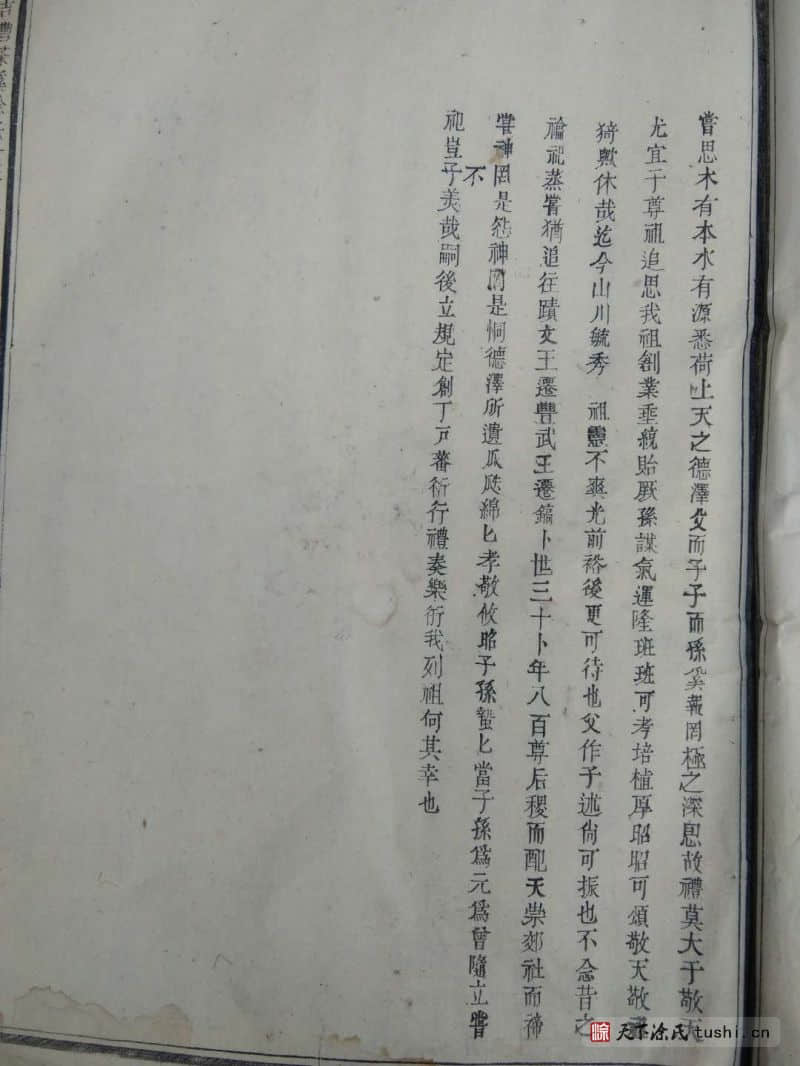 嘗思木有本水有源悉荷上天之德澤父而子子而孫冀報罔極之深恩故禮莫大于敬天
尤宜于尊祖追思我祖創業垂統貽厥孫謀氣運隆班班可考培植厚昭昭可頌敬天敬
猗歟休哉迄今山川毓秀 祖靈不爽光前裕後更可待也父作子述尙可振也不念昔之
禴祀蒸嘗猶追往蹟文王遷豐武王遷鎬卜世三十卜年八百尊后稷而配天崇郊社而禘
嘗神罔是怨神罔是恫德澤所遺瓜瓞綿匕孝敬攸昭子孫蟄匕當子孫爲元爲曾隨立嘗
祀豈不予美哉嗣後立規定創丁戸蕃衍行禮奏樂衎我列祖何其幸也
天下涂氏 tushi.cn